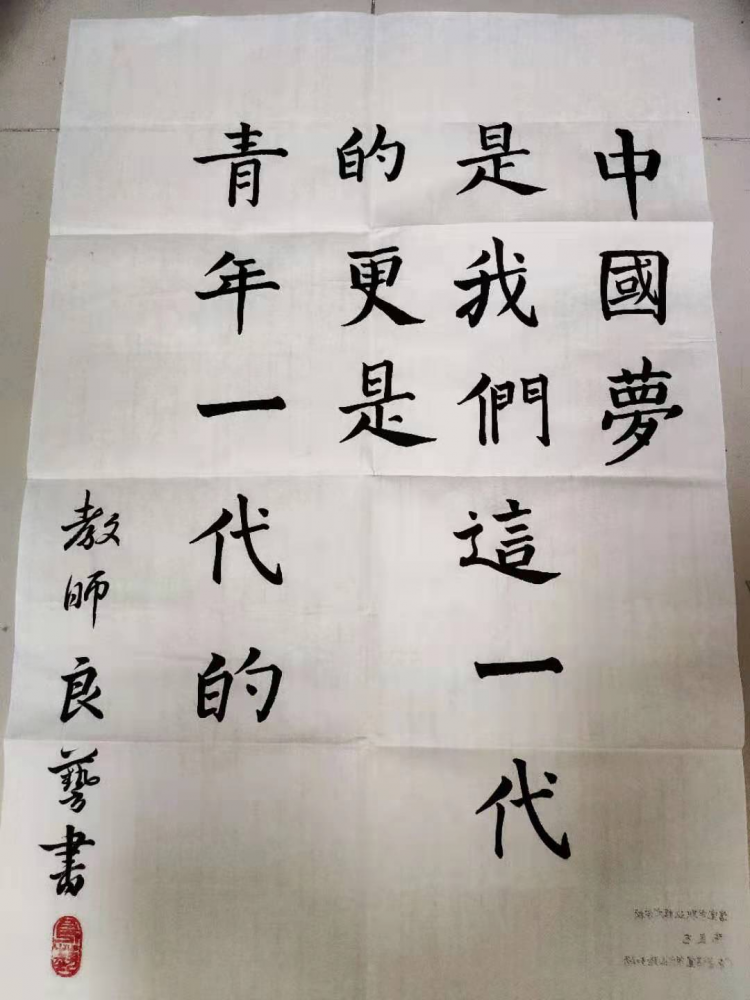 中國夢
是我們這一代
的更是
青年一代的
教師良藝書